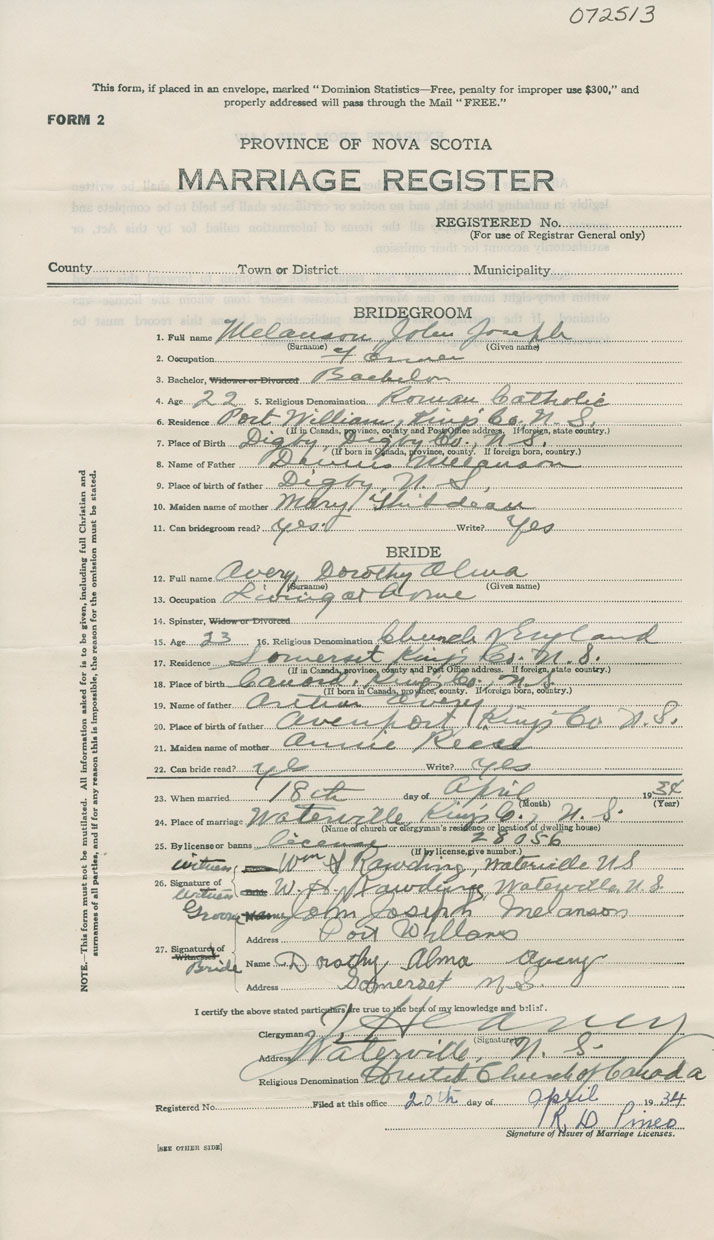 072513
This form, if placed in an envelope, marked "Dominion Statistics—Free, penalty for improper use $300," and
properly addressed will pass through the Mail "FREE."
FORM 2
PROVINCE OF NOVA SCOTIA
MARRIAGE REGISTER
REGISTERED No.
(For use of Registrar General only)
County Town or District Municipality
BRIDEGROOM
1. Full name Melanson John Joseph
(Surname) (Given name)
2. Occupation Farmer
3. Bachelor, Widower or Divorced Bachelor
4. Age 22 5. Religious Denomination Roman Catholic
6. Residence Port William, King's Co. N. S.
(If in Canada, province, county and Post Office address. If foreign, state country.)
7. Place of Birth Digby, Digby Co., N. S.
(If born in Canada, province, county. If foreign born, country.)
8. Name of Father Dennis Melanson
9. Place of birth of father Digby, N. S.
10. Maiden name of mother Mary Thibdeau
11. Can bridegroom read? Yes. Write? Yes
BRIDE
12. Full name Avery, Dorothy Alma
(Surname) (Given name)
13. Occupation Living at home
14. Spinster, Widow or Divorced
15. Age 23 16. Religious Denomination Church of England
17. Residence Somerset King's Co. N. S.
(If in Canada, province, county and Post Office address. If foreign, state country.)
18. Place of birth Canard, King's Co., N. S.
(If born in Canada, province, county. If foreign born, country.)
19. Name of father Arthur Avery
20. Place of birth of father Avenport, King's Co N. S.
21. Maiden name of mother Annie Reese
22. Can bride read? Yes Write? Yes
23. When married 18th day of April 1934
(Month) (Year)
24. Place of marriage Waterville, King's Co., N. S.
(Name of church or clergyman's residence or location of dwelling house)
25. By license or banns license 28056
(If by license, give number.)
Witness Wm H Rawding, Waterville N S
26. Signature of
Witness W. H. Rawding, Waterville, N. S.
Groom Name John Joseph Melanson
Address Port Williams
27. Signature of
Witnesses
Bride Name Dorothy Alma Avery
Address Somerset N. S.
I certify the above stated particulars are true to the best of my knowledge and belief.
Clergyman J. Heaney
(Signature)
Address Waterville, N. S.
Religious Denomination United Church of Canada
Registered No. Filed at this office 20th day of April 1934
R D Pineo
Signature of Issuer of Marriage Licenses.
[SEE OTHER SIDE]
NOTE.—This form must not be mutilated. All information asked for is to be given, including full Christian and
surnames of all parties, and if for any reason this is impossible, the reason for the omission must be stated.